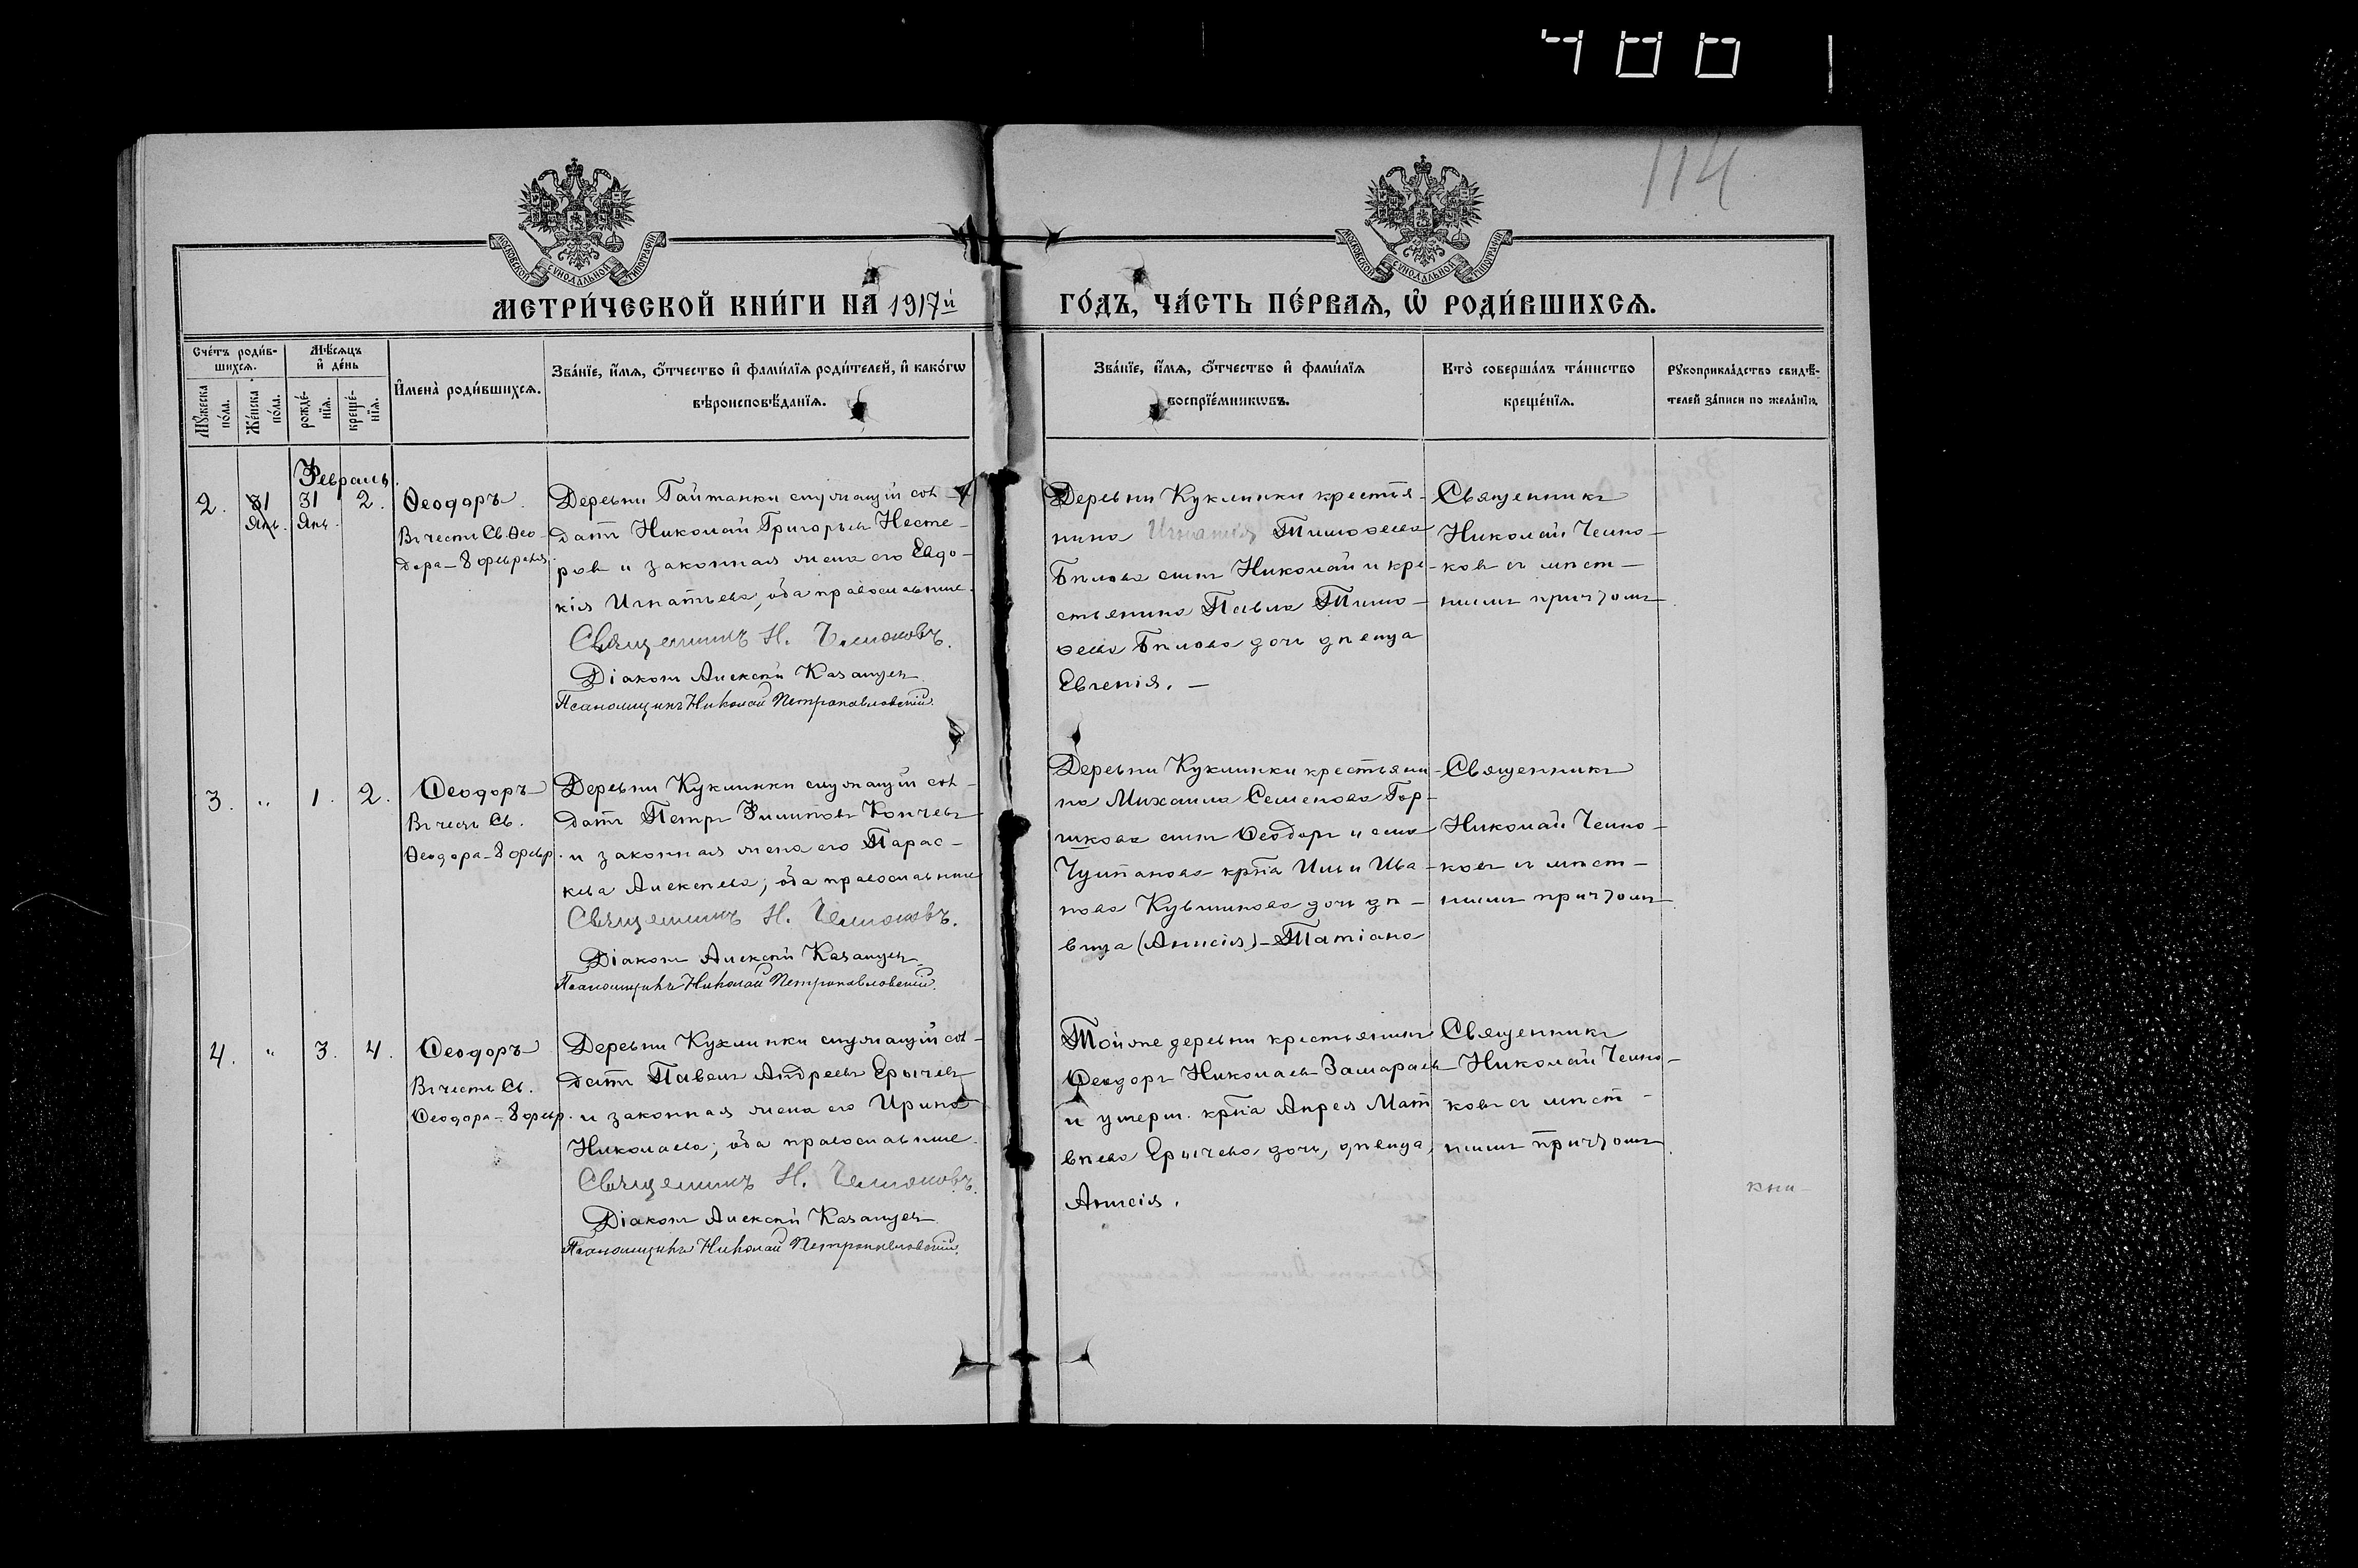 114
МОСКОВСКОЙ СѴНОДАЛЬНОЙ ТИПОГРАФІИ
МОСКОВСКОЙ СѴНОДАЛЬНОЙ ТИПОГРАФІИ
МЕТРИ́ЧЕСКОЙ КНИ́ГИ НА 1917й
ГО́ДЪ, ЧА́СТЬ ПЕ́РВАѦ, Ѡ҆ РОДИ́ВШИХСѦ.
Сче́тъ роди́в-
шихсѧ.
Мꙋ́жеска по́ла.
Же́нска по́ла.
Мѣ́сѧцъ
и҆ де́нь
рожде́-нїѧ.
креще́-нїѧ.
И҆мена̀ роди́вшихсѧ.
Зва́нїе, и҆́мѧ, ѻ҆́тчество и҆ фами́лїѧ роди́телей, и҆ како́гѡ
вѣроисповѣ́данїѧ.
Зва́нїе, и҆́мѧ, ѻ҆́тчество и҆ фами́лїѧ
воспрїе́мникѡвъ.
Кто̀ соверша́лъ та́инство
креще́нїѧ.
Рꙋкоприкла́дство свидѣ́-
телей за́писи по жела́нїю.
Февраль.
2. 31 Янв. 31 Янв. 2.
Ѳеодоръ.
Въ честь Св. Ѳео-
дора - 8 февраля.
Деревни Гайтанки служащій сол-
датъ Николай Григорьевъ Несте-
ровъ и законная жена его Евдо-
кія Игнатьева; оба православные.
Священникъ Н. Челноковъ.
Діаконъ Алексѣй Казанцевъ
Псаломщикъ Николай Петропавловскій.
Деревни Куклинки крестья-
нина Игнатія Тимоѳеева
Бѣлова сынъ Николай и кре-
стьянина Павла Тимо-
ѳеева Бѣлова дочь дѣвица
Евгенія. -
Священникъ
Николай Челно-
ковъ съ мѣст-
нымъ причтомъ.
3. " 1. 2.
Ѳеодоръ
Въ честь Св.
Ѳеодора - 8 февр.
Деревни Куклинки служащій сол-
датъ Петръ Филиповъ Копчевъ
и законная жена его Парас-
кева Алексѣева; оба православные
Священникъ Н. Челноковъ.
Діаконъ Алексѣй Казанцевъ
Псаломщикъ Николай Петропавловскій.
Деревни Куклинки крестьяни-
на Михаила Семенова Гор-
шкова сынъ Ѳеодоръ и села
крна Ильи Ива-
нова Кувшинова дочь дѣ-
вица (Анисія) - Татіана
Священникъ
Николай Челно-
ковъ съ мѣст-
нымъ причтомъ.
4. " 3. 4.
Ѳеодоръ
Въ честь Св.
Ѳеодора - 8 февр.
Деревни Куклинки служащій сол-
датъ Павелъ Андреевъ Ерычевъ
и законная жена его Ирина
Николаева; оба православные.
Священникъ Н. Челноковъ.
Діаконъ Алексѣй Казанцевъ
Псаломщикъ Николай Петропавловскій.
Той же деревни крестьянинъ
Ѳеодоръ Николаевъ Замараевъ
и умерш. крна Анрея Мат
вѣева Ерычева дочь, дѣвица,
Анисія.
Священникъ
Николай Челно-
ковъ съ мѣст-
нымъ причтомъ.
кни-